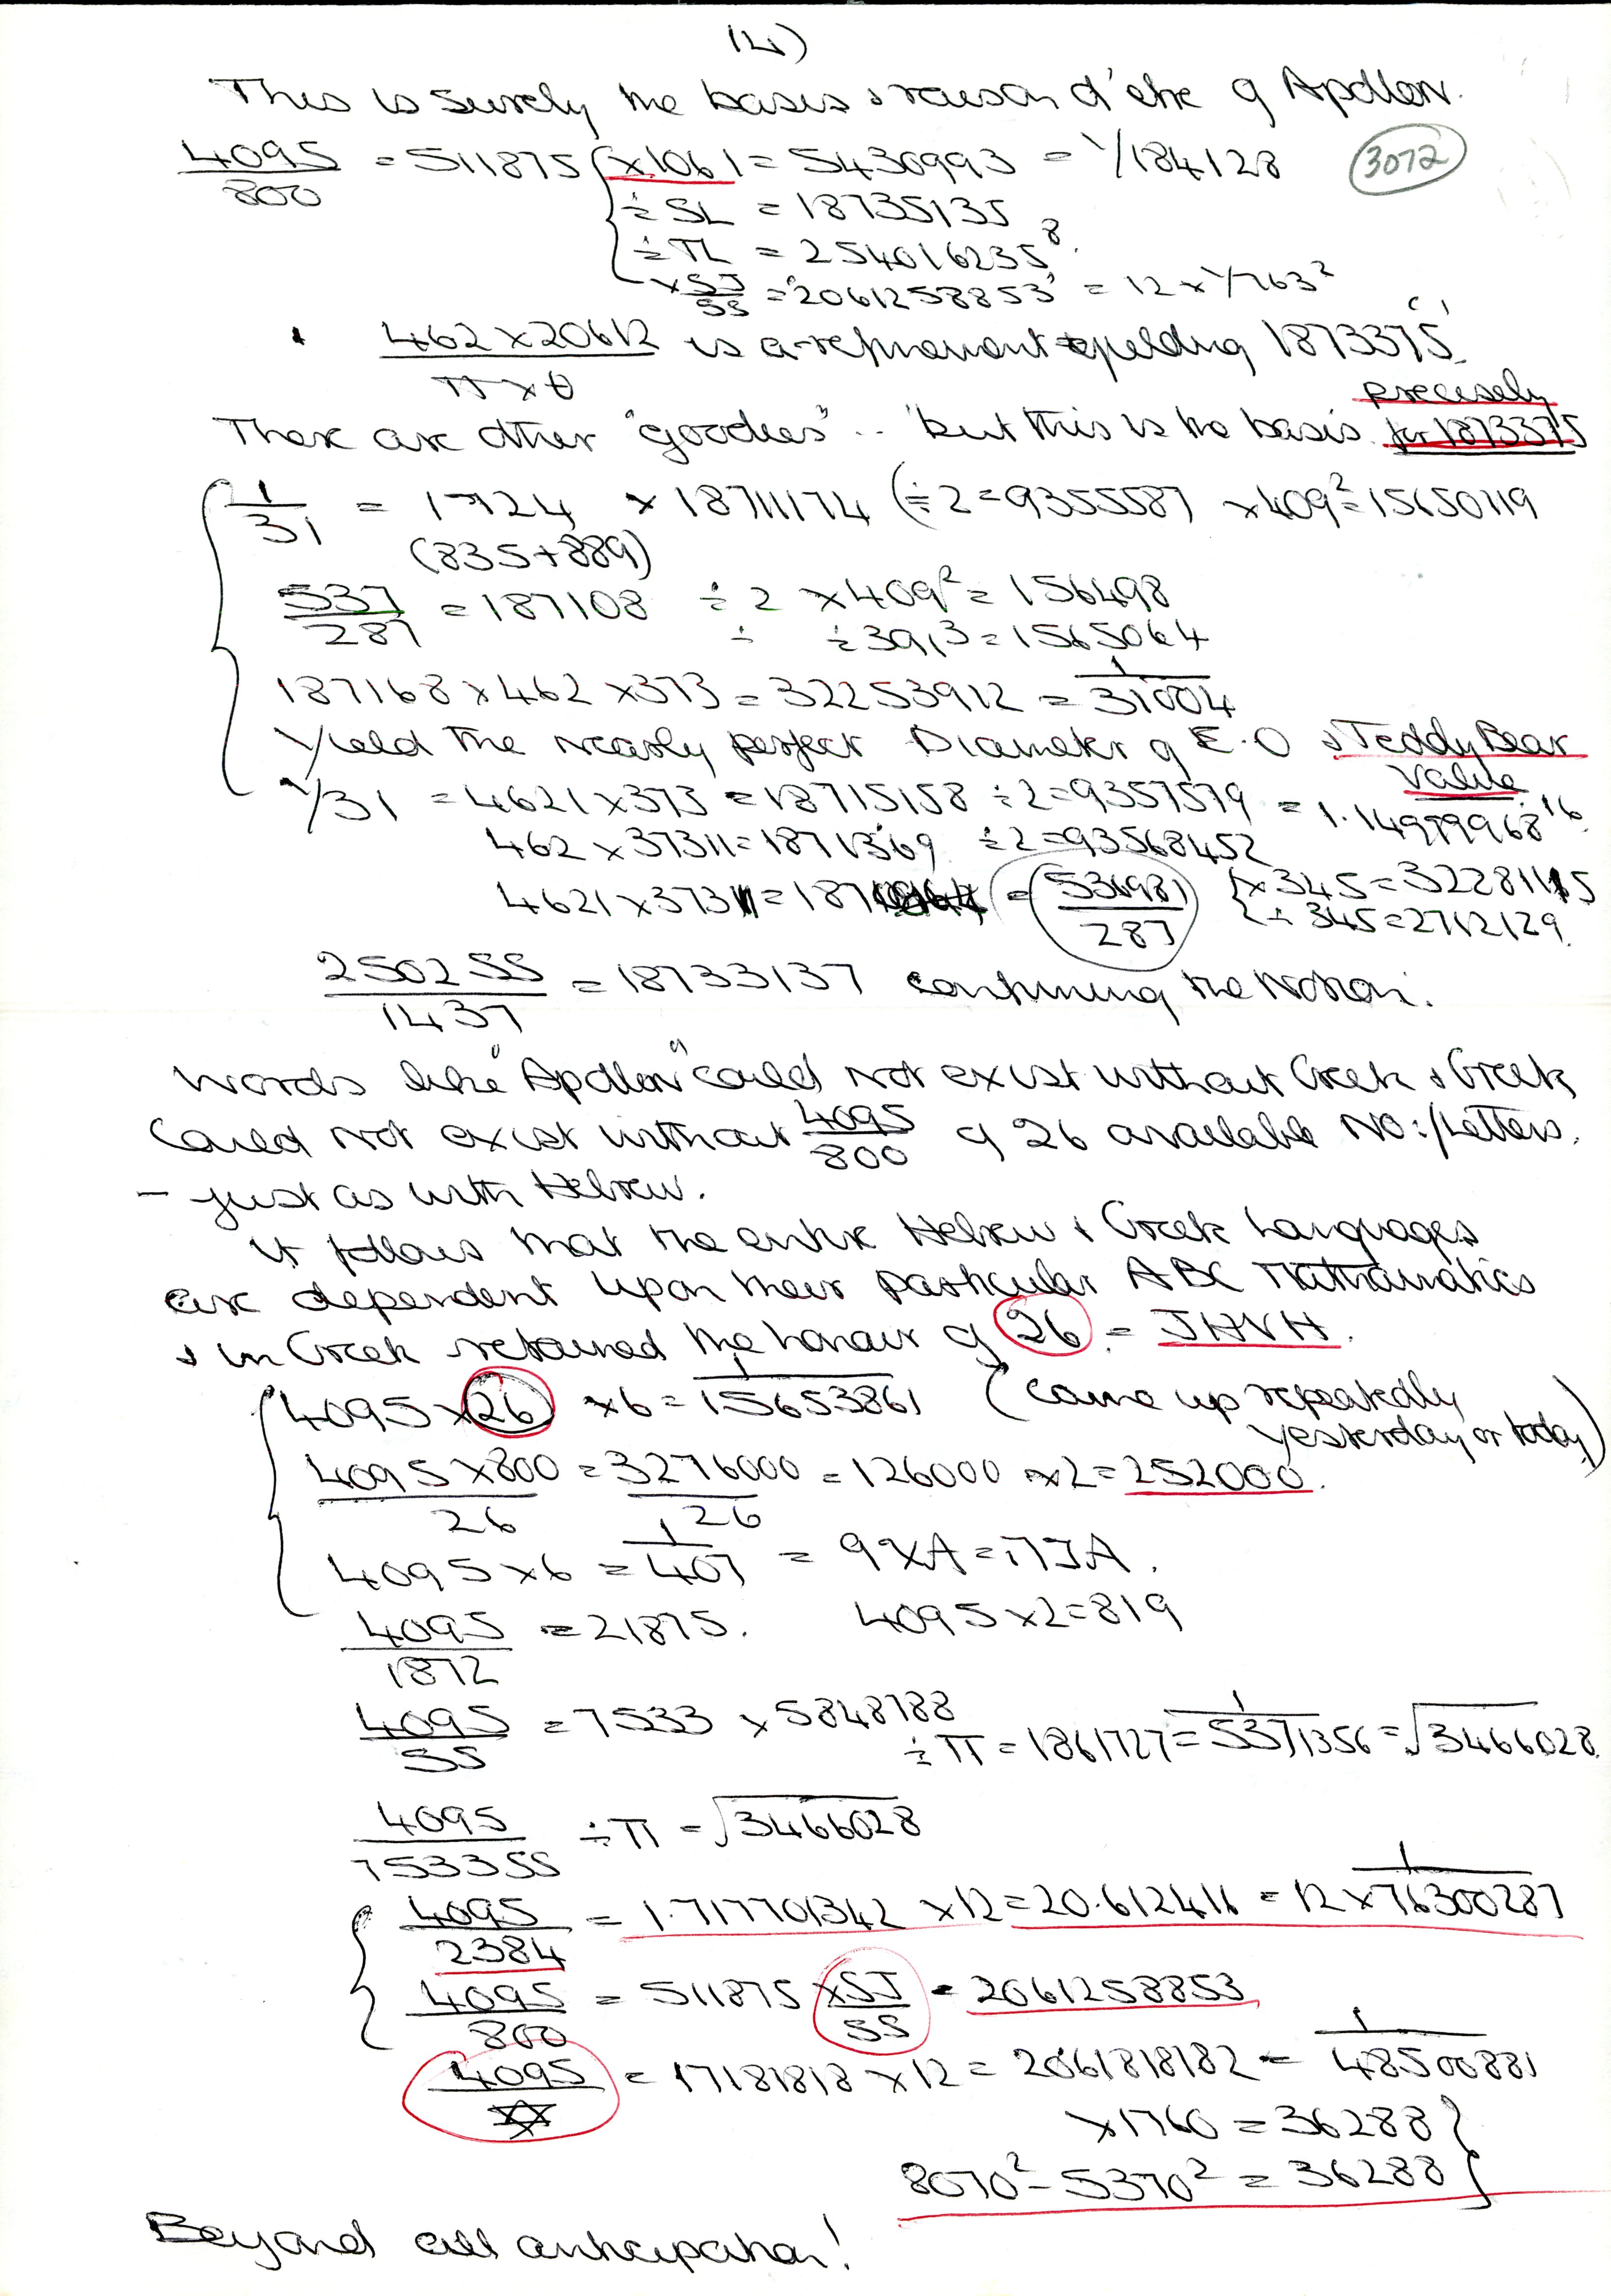 (14)
This is surely the basis & raison d'etre of Apollon.
4095/800 = 511875 { x1061 = 5430993 = 1/184128 (3072)
÷ SL = 18735135
÷ TL = 254016235 8
x SJ/SS = 2061258853 = 12 x 1/763²
462 x 20612 / π x θ is a refinement yielding 1873375
There are other "goodies" .. but this is the basis precisely for 1873375
1/31 = 1724 x 18711174 (÷2 = 9355587 x 409² = 15650119
(835+889)
537/287 = 187108 ÷ 2 x 409² = 156498
÷ ÷ 391,3 = 1565064
187168 x 462 x 373 = 32253912 = 1/31004
Yield the nearly perfect Diameter of E.O & Teddy Bear Value
1/31 = 4621 x 373 = 18715158 ÷ 2 = 9357579 = 1.149799968 16
462 x 37311 = 1871369 ÷ 2 = 93568452
4621 x 37311 = 187 = 536981/287 { x 345 = 32281115
÷ 345 = 2712129
2502 SS/1437 = 18733137 confirming the Notion.
Words like "Apollon" could not exist without Greek & Greek
could not exist without 4095/800 of 26 available No:/Letters.
- just as with Hebrew.
It follows that the entire Hebrew & Greek Languages
are dependent upon their particular ABC Mathematics
& in Greek retained the honour of 26 = JHVH.
4095 x 26 x 6 = 1/15653861 (came up repeatedly
yesterday or today)
4095 x 800/26 = 3276000/26 = 126000 x 2 = 252000.
4095 x 6 = 1/407 = 9 x A = π J A.
4095/1872 = 21875. 4095 x 2 = 819
4095/SS = 7533 x 5848788
÷ π = 1861727 = 1/5371356 = √3466028
4095/7533 SS ÷ π = √3466028
4095/2384 = 1.717701342 x 12 = 20.612416 = 12 x 1/76300287
4095/800 = 511875 x SJ/SS = 2061258853
4095/✡ = 17181818 x 12 = 2061818182 = 1/48500881
x 1760 = 36288 }
8070² - 5370² = 36288 }
Beyond all anticipation!